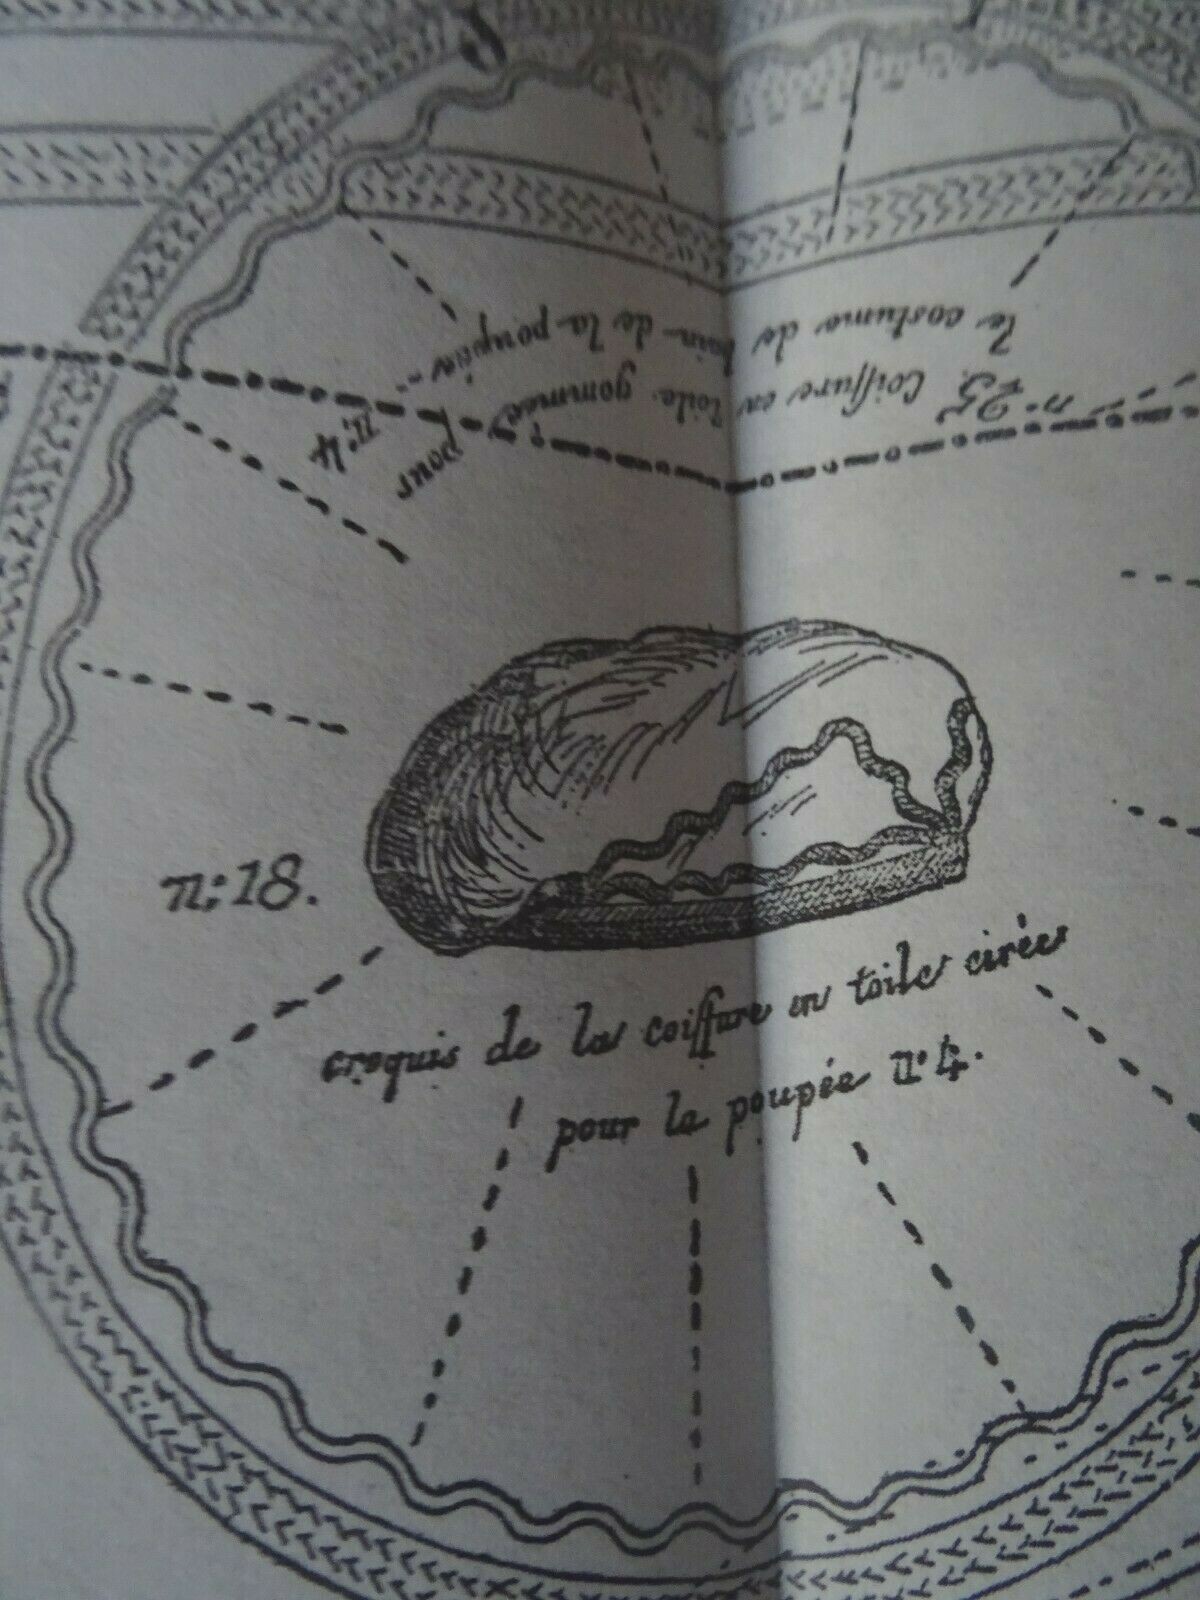 n: 25. Coiffure en toile gommée pour
le costume de bain de la poupée
n: 4
n: 18.
croquis de la coiffure en toile cirée
pour la poupée n: 4.